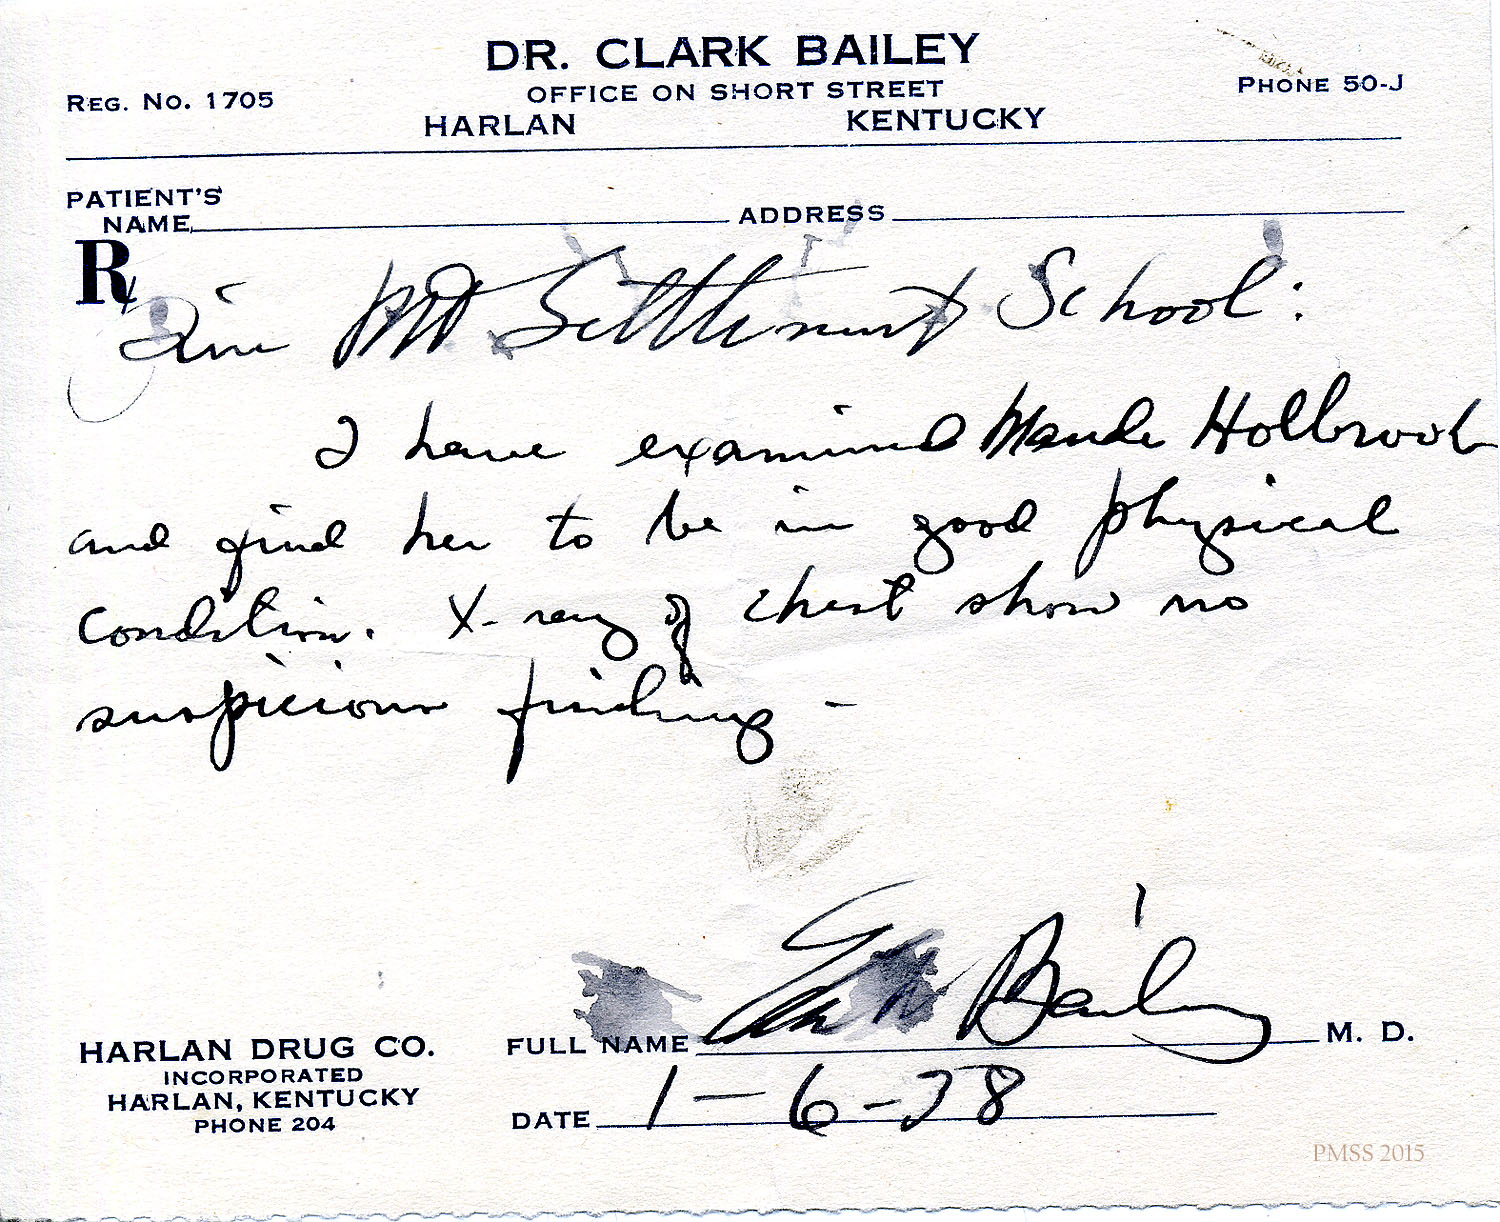 DR. CLARK BAILEY
REG. NO. 1705 OFFICE ON SHORT STREET PHONE 50-J
HARLAN KENTUCKY
PATIENT'S
NAME ADDRESS
Rx
Pine Mt Settlement School:
I have examined Maude Holbrook
and find her to be in good physical
condition. X-ray of chest show no
suspicious finding -
Clark Bailey
HARLAN DRUG CO. FULL NAME M. D.
INCORPORATED
HARLAN, KENTUCKY
PHONE 204
DATE 1-6-38
PMSS 2015